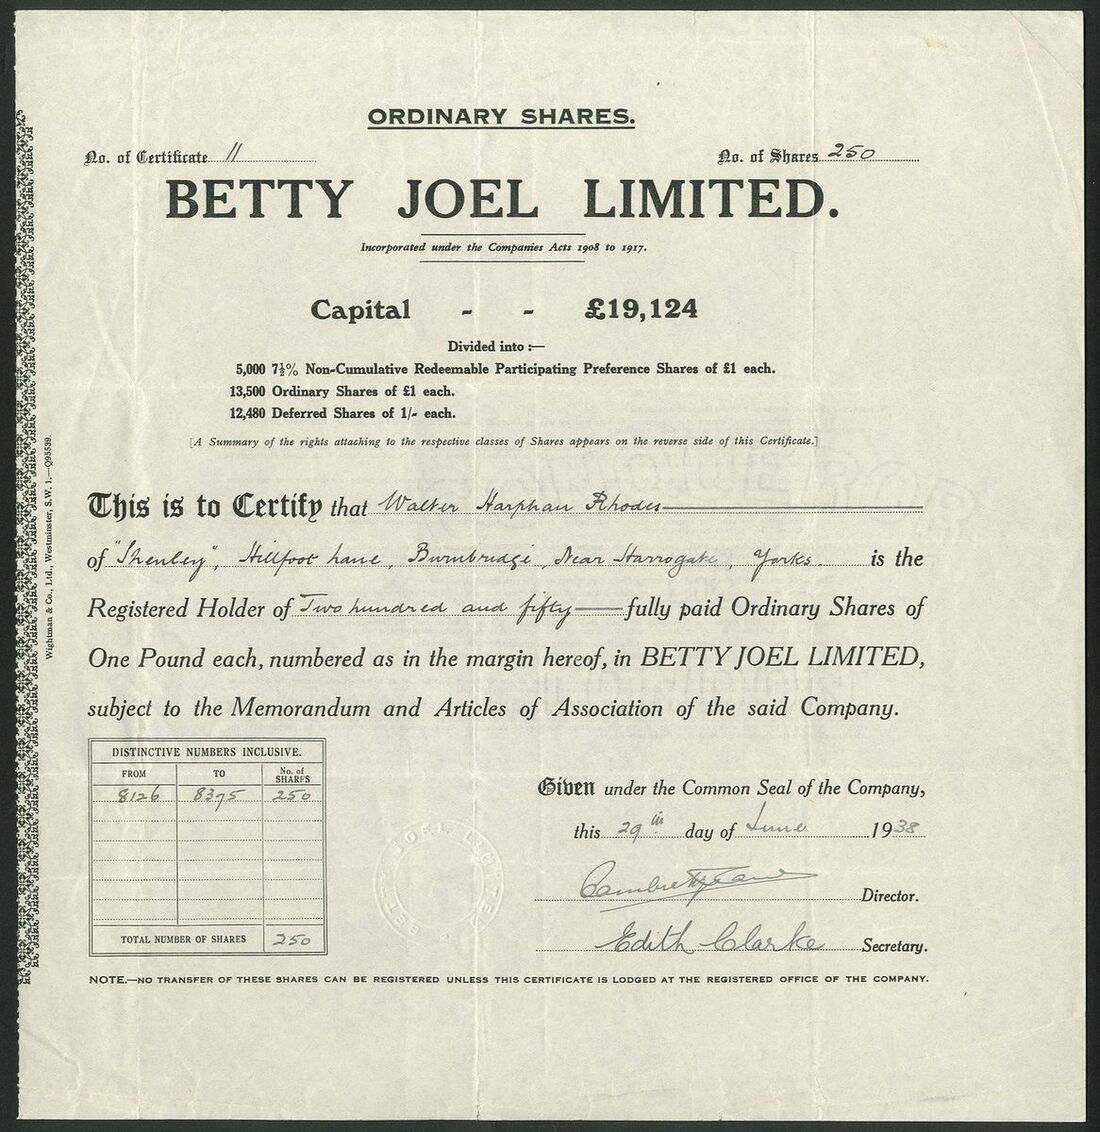 ORDINARY SHARES.
No. of Certificate 11
No. of Shares 250
BETTY JOEL LIMITED.
Incorporated under the Companies Acts 1908 to 1917.
Capital - - £19,124
Divided into :—
5,000 7½% Non-Cumulative Redeemable Participating Preference Shares of £1 each.
13,500 Ordinary Shares of £1 each.
12,480 Deferred Shares of 1/- each.
[A Summary of the rights attaching to the respective classes of Shares appears on the reverse side of this Certificate.]
Wightman & Co., Ltd., Westminster, S.W. 1.—Q95539.
This is to Certify that Walter Harphan Rhodes
of "Shenley", Hillfoot Lane, Burnbridge, Near Harrogate, Yorks. is the
Registered Holder of Two hundred and fifty fully paid Ordinary Shares of
One Pound each, numbered as in the margin hereof, in BETTY JOEL LIMITED,
subject to the Memorandum and Articles of Association of the said Company.
DISTINCTIVE NUMBERS INCLUSIVE.
FROM TO No. of SHARES
8126 8375 250
TOTAL NUMBER OF SHARES 250
BETTY JOEL LIMITED
Given under the Common Seal of the Company,
this 29th day of June 1938
Director.
Edith Clarke Secretary.
NOTE.—NO TRANSFER OF THESE SHARES CAN BE REGISTERED UNLESS THIS CERTIFICATE IS LODGED AT THE REGISTERED OFFICE OF THE COMPANY.